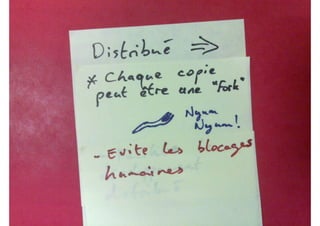 Distribué ⇒
* Chaque copie
peut être une "Fork"
Nyum
Nyum!
- Evite les blocages
humaines